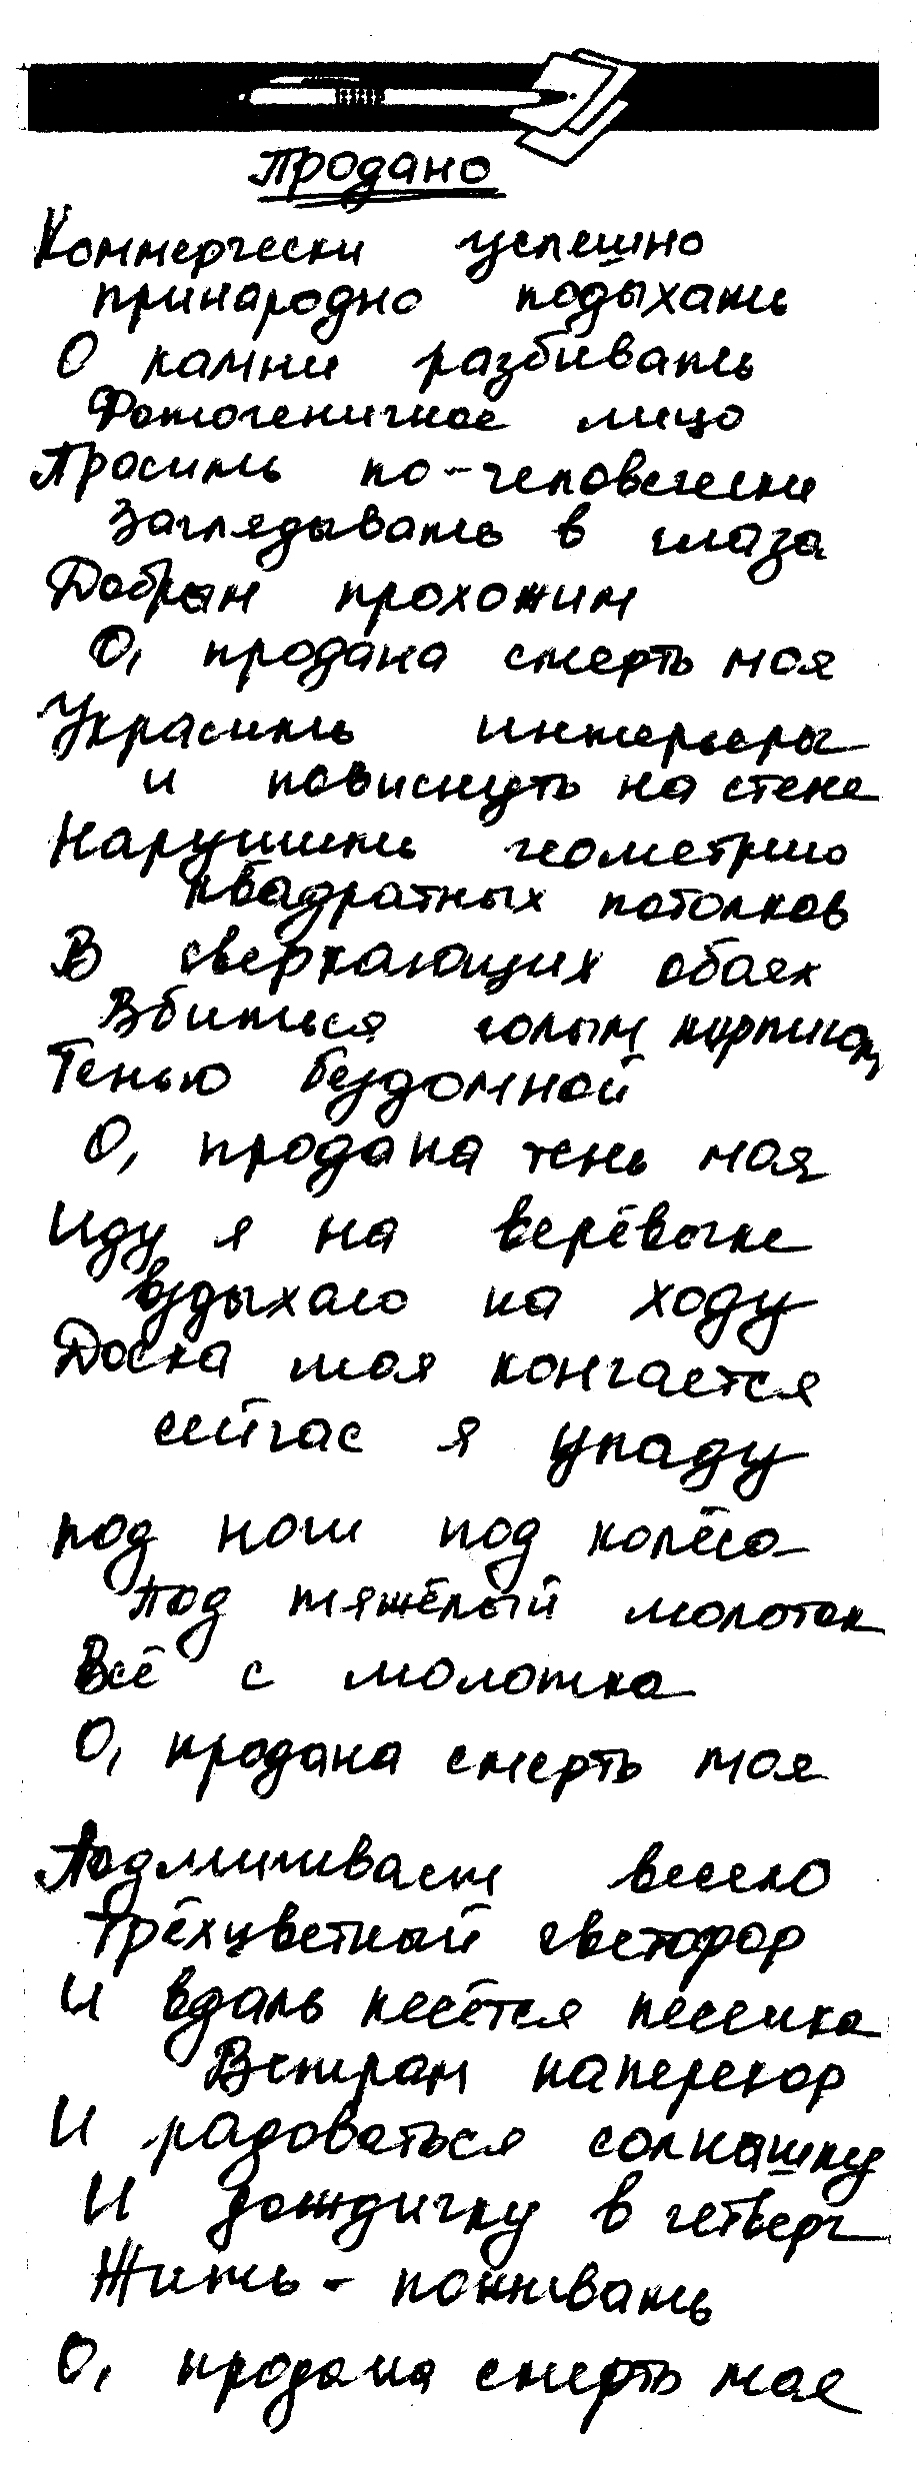 Продано
Коммерчески успешно
принародно подыхать
О камни разбивать
Фотогеничное лицо
Просить по-человечески
Заглядывать в глаза
Добрым прохожим
О, продана смерть моя
Украсить интерьеры
и повиснуть на стене
Нарушить геометрию
квадратных потолков
В сверкающих обоях
Вбиться голым кирпичом,
Тенью бездомной
О, продана тень моя
Иду я на верёвочке
вздыхаю на ходу
Доска моя кончается
сейчас я упаду
под ноги под колёса
Под тяжёлый молоток
Всё с молотка
О, продана смерть моя
Подмигивает весело
Трёхцветный светофор
И вдаль несётся песенка
Ветрам наперекор
И радоваться солнышку
И дождичку в четверг
Жить - поживать
О, продана смерть моя